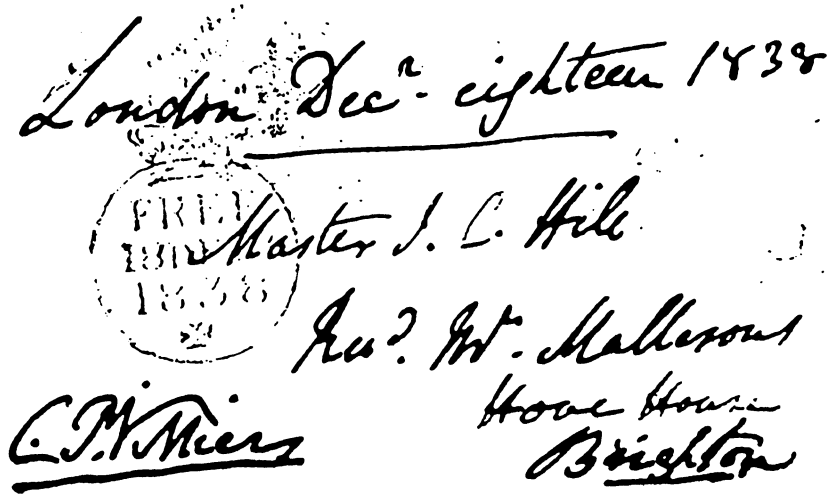 London Decr. eighteen 1838
FREE
1838
Master J. C. Hill
Revd. Mr. Mallesons
Hove House
Brighton
C. P. Villiers